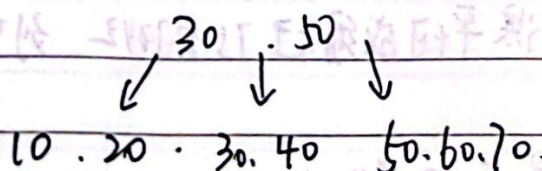 30 . 50
10 . 20 . 30. 40 50. 60. 70.